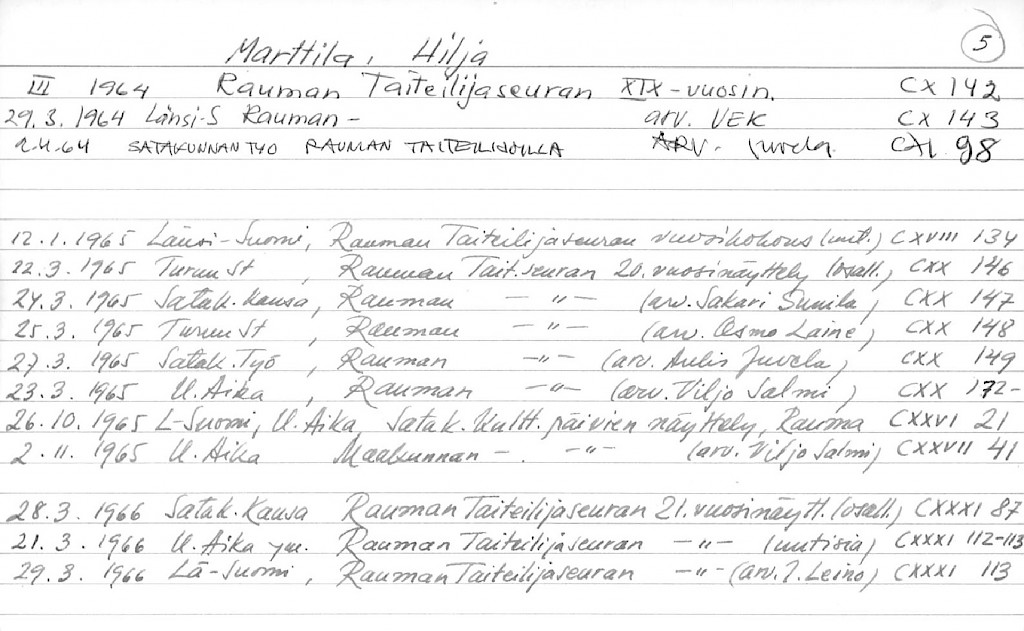 5
Marttila, Hilja
III 1964 Rauman Taiteilijaseuran XIX-vuosin. CX 142
29.3.1964 Länsi-S Rauman - arv. VEK CX 143
2.4.64 SATAKUNNAN TYÖ RAUMAN TAITEILIJOILLA ARV. Juvela CXI 98
12.1.1965 Länsi-Suomi, Rauman Taiteilijaseuran vuosikokous (uut.) CXVIII 134
22.3.1965 Turun St, Rauman Tait.seuran 20.vuosinäyttely (osall.) CXX 146
24.3.1965 Satak.Kansa, Rauman - " - (arv. Sakari Sunila) CXX 147
25.3.1965 Turun St, Rauman - " - (arv. Osmo Laine) CXX 148
27.3.1965 Satak.Työ, Rauman - " - (arv. Aulis Juvela) CXX 149
23.3.1965 U.Aika, Rauman - " - (arv. Viljo Salmi) CXX 172-
26.10.1965 L-Suomi, U.Aika, Satak. Kultt. päivien näyttely, Rauma CXXVI 21
2.11.1965 U.Aika Maakunnan -. - " - (arv. Viljo Salmi) CXXVII 41
28.3.1966 Satak.Kansa Rauman Taiteilijaseuran 21.vuosinäytt. (osall.) CXXXI 87
21.3.1966 U.Aika ym. Rauman Taiteilijaseuran - " - (uutisia) CXXXI 112-113
29.3.1966 Lä-Suomi, Rauman Taiteilijaseuran - " - (arv. J. Leino) CXXXI 113